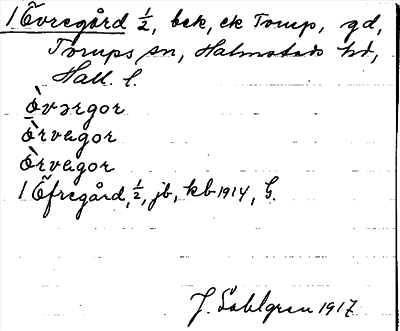 1 Övregård 1/2, bek, ek Torup, gd,
Torups sn, Halmstads hd,
Hall. l.
Òvərgor
Òrvəgor
Òrvəgor
1 Öfregård, 1/2, jb, kb 1914, G.
J. Sahlgren 1917